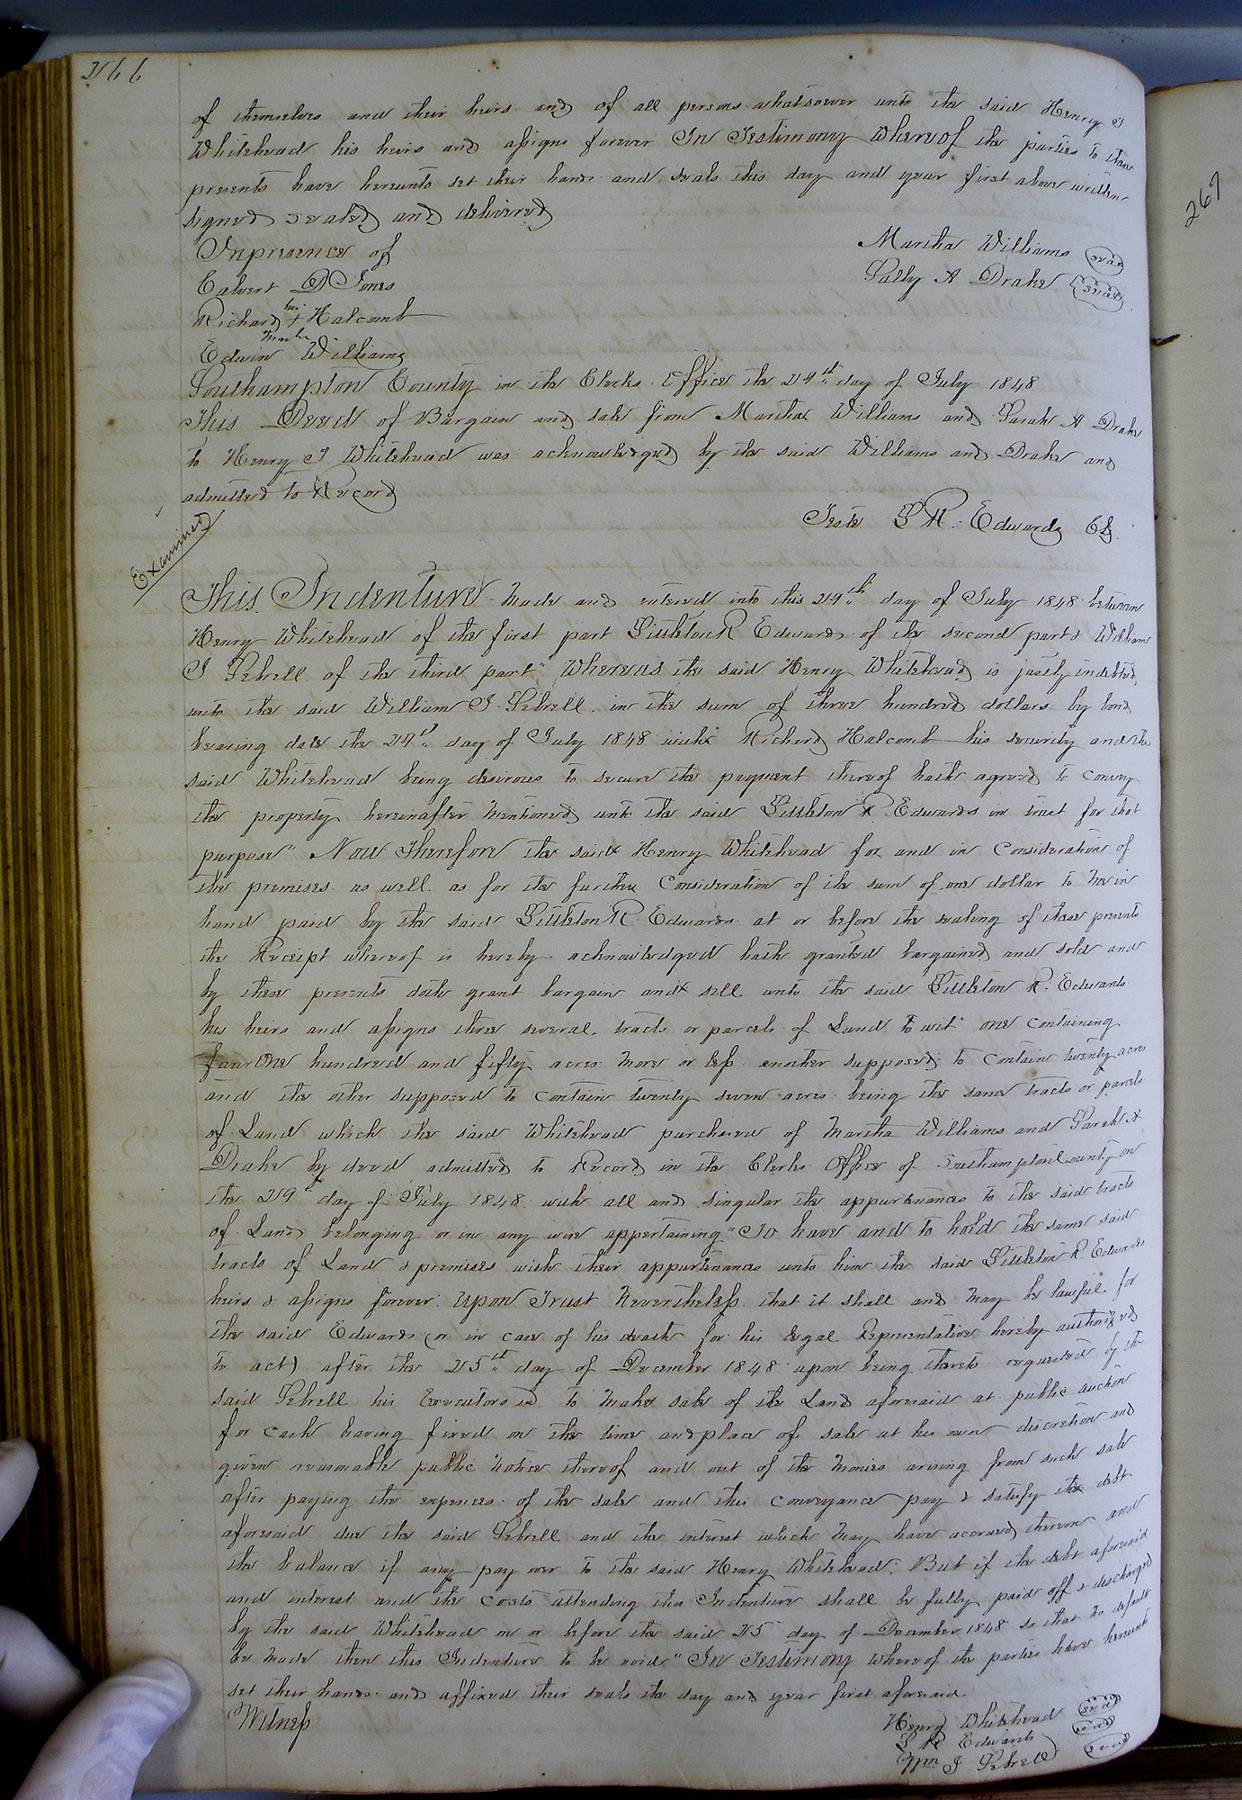 266
of themselves and their heirs and of all persons whatsoever unto the said Henry J
Whitehead his heirs and assigns forever In Testimony Whereof the parties to these
presents have hereunto set their hands and seals this day and year first above written
signed sealed and delivered
In presence of
Martha Williams (seal)
Calvert D Jones
Sally A Drake (seal)
Richard his + mark Halcomb
Edwin Williams
Southampton County in the Clerks Office the 29th day of July 1848
This Deed of Bargain and sale from Martha Williams and Sarah A Drake
to Henry J Whitehead was acknowledged by the said Williams and Drake and
admitted to Record
Teste L R. Edwards Clk.
Examined
This Indenture Made and entered into this 29th day of July 1848 between
Henry Whitehead of the first part Littleton R Edwards of the second part & William
J Sebrell of the third part" Whereas the said Henry Whitehead is justly indebted
unto the said William J. Sebrell in the sum of three hundred dollars by bond
bearing date the 29th day of July 1848 with Richard Halcomb his security and the
said Whitehead being desirous to secure the payment thereof hath agreed to convey
the property hereinafter mentioned unto the said Littleton R. Edwards in trust for that
purpose" Now Therefore the said Henry Whitehead for and in Consideration of
the premises as well as for the further Consideration of the sum of one dollar to me in
hand paid by the said Littleton R Edwards at or before the sealing of these presents
the Receipt whereof is hereby acknowledged hath granted bargained and sold and
by these presents doth grant bargain and sell unto the said Littleton R. Edwards
his heirs and assigns three several tracts or parcels of Land to wit one containing
four One hundred and fifty acres more or less another supposed to contain twenty acres
and the other supposed to contain twenty seven acres being the same tracts or parcels
of Land which the said Whitehead purchased of Martha Williams and Sarah A
Drake by deed admitted to Record in the Clerks Office of Southampton County on
the 29th day of July 1848 with all and singular the appurtenances to the said tracts
of Land belonging or in any wise appertaining" To have and to hold the same said
tracts of Land & premises with their appurtenances unto him the said Littleton R Edwards
heirs & assigns forever. Upon Trust Nevertheless that it shall and may be lawful for
the said Edwards (or in case of his death for his legal Representative hereby authorized
to act) after the 25th day of December 1848 upon being thereto required by the
said Sebrell his Executors &c to make sale of the Land aforesaid at public auction
for cash having fixed on the time and place of sale at his own discretion and
given reasonable public notice thereof and out of the Monies arising from such sale
after paying the expences of the sale and this conveyance pay & satisfy the debt
aforesaid due the said Sebrell and the interest which may have accrued thereon and
the balance if any pay over to the said Henry Whitehead. But if the debt aforesaid
and interest and the costs attending this Indenture shall be fully paid off & discharged
by the said Whitehead on or before the said 25 day of December 1848 so that no default
be made then this Indenture to be void" In Testimony whereof the parties have hereunto
set their hands and affixed their seals the day and year first aforesaid
Witness
Henry Whitehead (seal)
L R Edwards (seal)
Wm J Sebrell (seal)
267